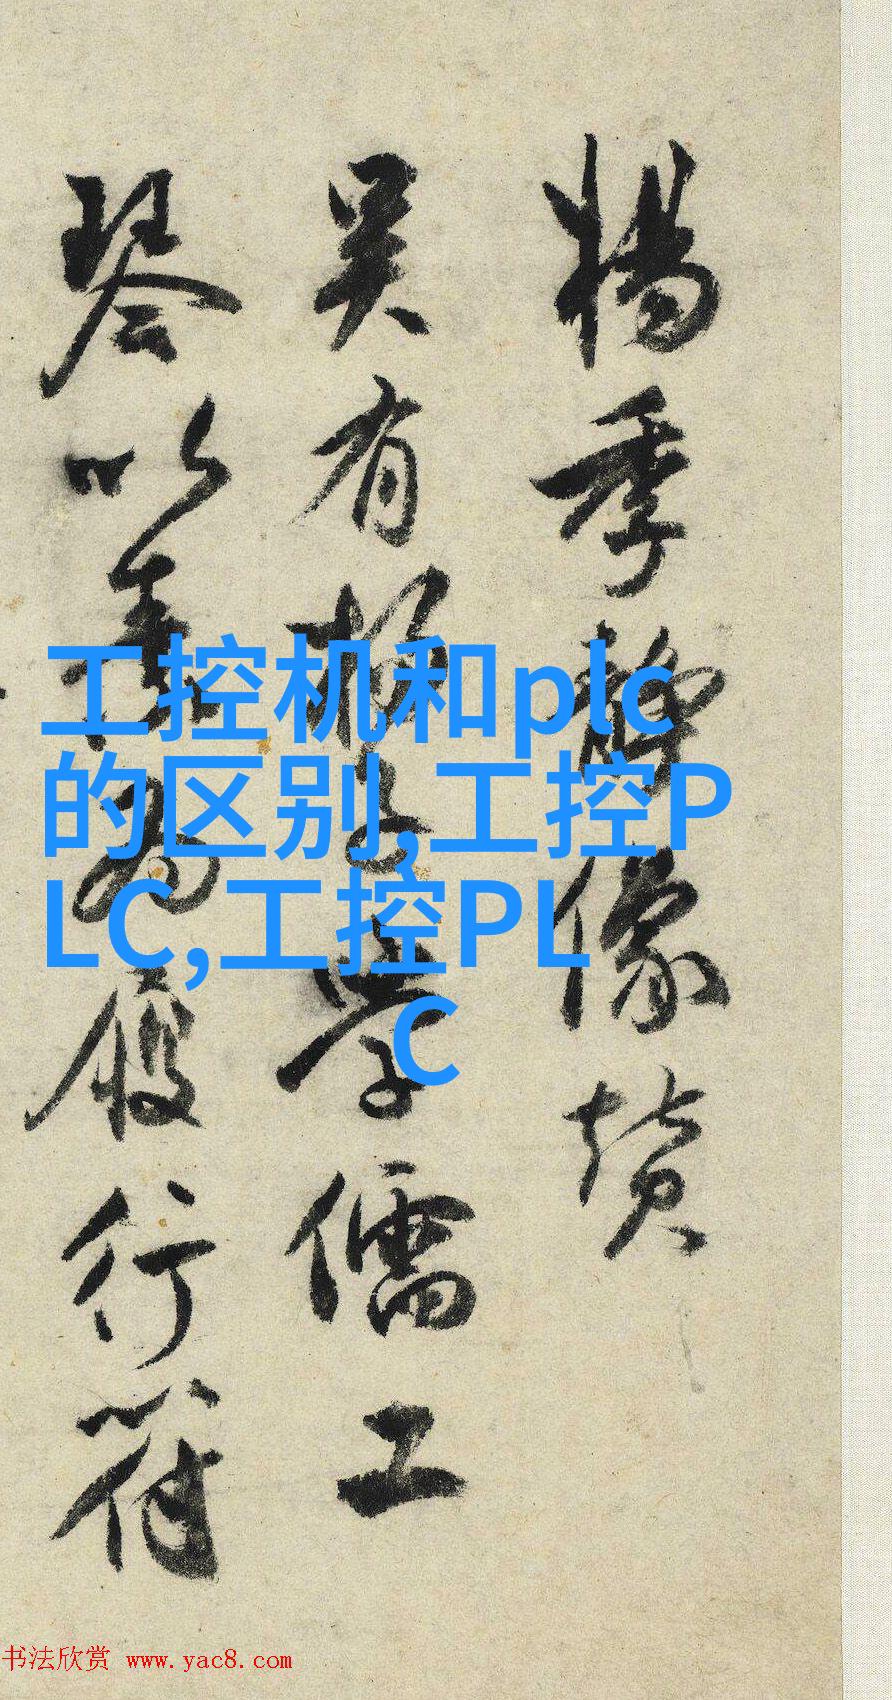 楊季静像赞
吴有楊子學儒工
琴以為履行符
工控机和plc
的区别,工控P
LC,工控PL
C
书法欣赏 www.yac8.com